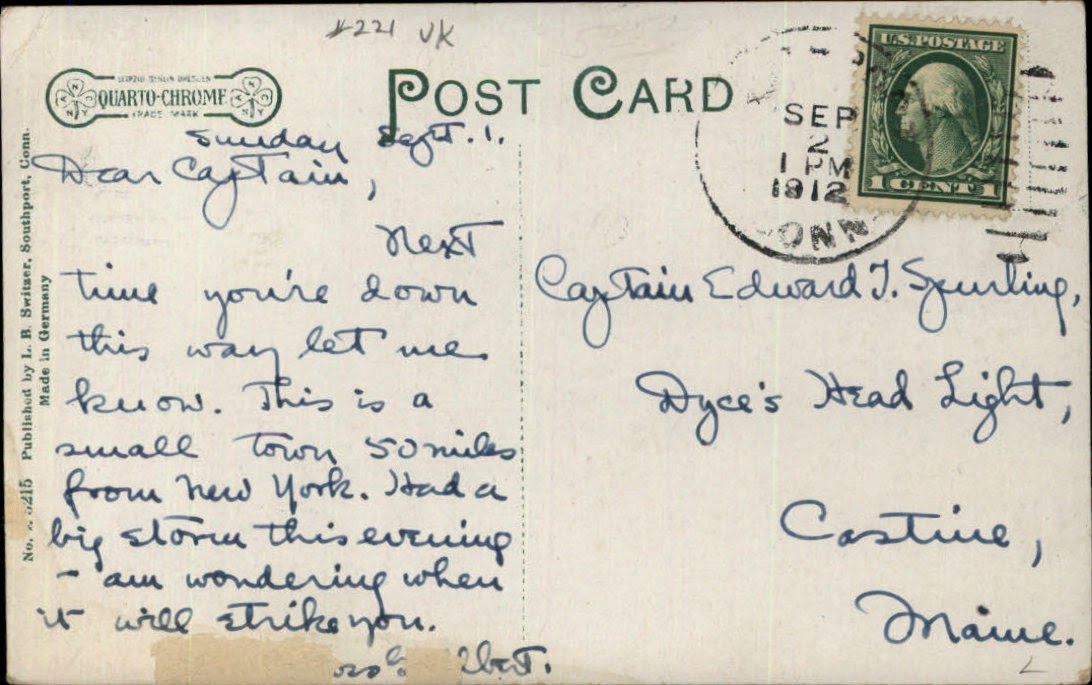 #221 UK
LEIPZIG BERLIN DRESDEN
QUARTO-CHROME
TRADE MARK
POST CARD
U.S. POSTAGE
1 CENT 1
SEP
2
1 PM
1912
CONN
Sunday Sept. 1.
Dear Captain,
Next
time you're down
this way let me
know. This is a
small town 50 miles
from New York. Had a
big storm this evening
- am wondering when
it will strike you.
Captain Edward T. Spurling,
Dyce's Head Light,
Castine,
Maine.
No. 5215 Published by L. B. Switzer, Southport, Conn.
Made in Germany